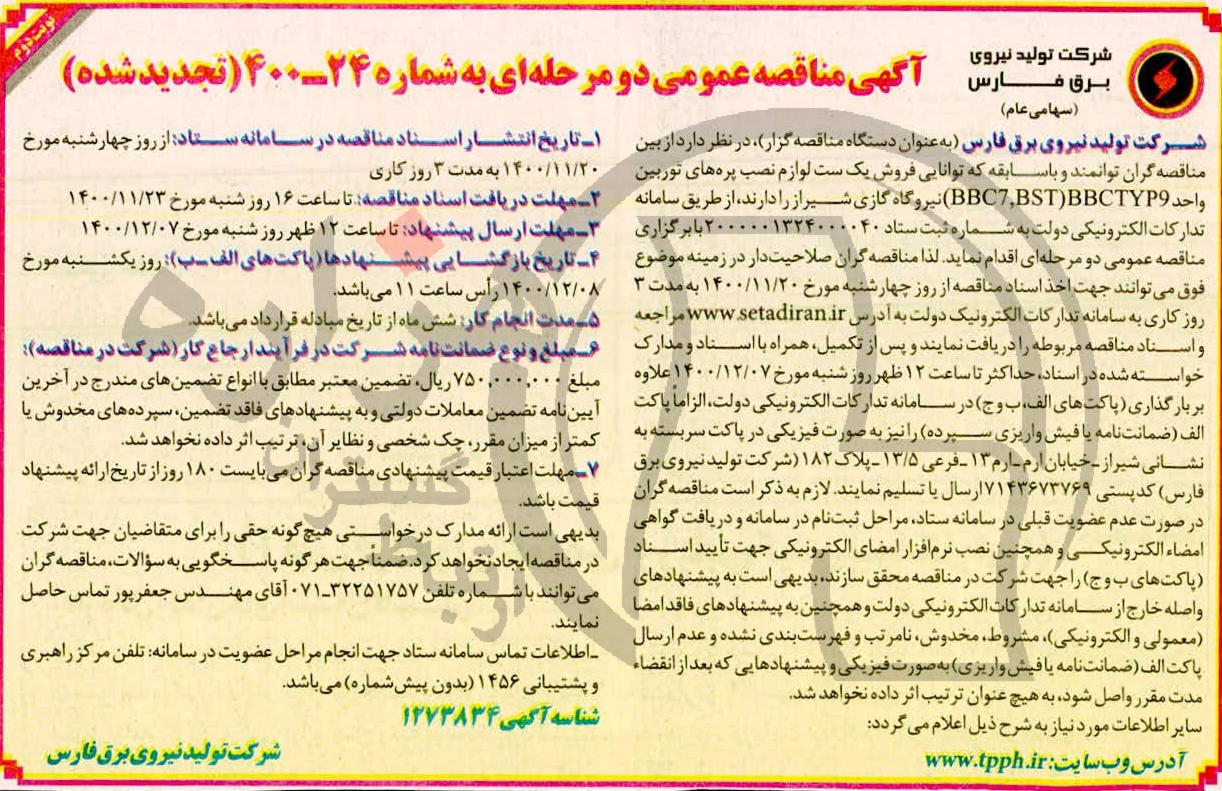 نوبت دوم
شرکت تولید نیروی
برق فارس
(سهامی عام)
آگهی مناقصه عمومی دو مرحله‌ای به شماره ۲۴-۴۰۰ (تجدید شده)
شرکت تولید نیروی برق فارس (به عنوان دستگاه مناقصه گزار)، در نظر دارد از بین
مناقصه گران توانمند و باسابقه که توانایی فروش یک ست لوازم نصب پره‌های توربین
واحد BBCTYP9 (BBC7,BST) نیروگاه گازی شیراز را دارند، از طریق سامانه
تدارکات الکترونیکی دولت به شماره ثبت ستاد ۲۰۰۰۰۰۱۳۲۴۰۰۰۰۴۰ با برگزاری
مناقصه عمومی دو مرحله‌ای اقدام نماید. لذا مناقصه گران صلاحیت‌دار در زمینه موضوع
فوق می‌توانند جهت اخذ اسناد مناقصه از روز چهارشنبه مورخ ۱۴۰۰/۱۱/۲۰ به مدت ۳
روز کاری به سامانه تدارکات الکترونیک دولت به آدرس www.setadiran.ir مراجعه
و اسناد مناقصه مربوطه را دریافت نمایند و پس از تکمیل، همراه با اسناد و مدارک
خواسته شده در اسناد، حداکثر تا ساعت ۱۲ ظهر روز شنبه مورخ ۱۴۰۰/۱۲/۰۷ علاوه
بر بارگذاری (پاکت‌های الف، ب و ج) در سامانه تدارکات الکترونیکی دولت، الزاماً پاکت
الف (ضمانت‌نامه یا فیش واریزی سپرده) را نیز به صورت فیزیکی در پاکت سربسته به
نشانی شیراز-خیابان ارم-ارم ۱۳-فرعی ۱۳/۵-پلاک ۱۸۲ (شرکت تولید نیروی برق
فارس) کدپستی ۷۱۴۳۶۷۳۷۶۹ ارسال یا تسلیم نمایند. لازم به ذکر است مناقصه گران
در صورت عدم عضویت قبلی در سامانه ستاد، مراحل ثبت‌نام در سامانه و دریافت گواهی
امضاء الکترونیکی و همچنین نصب نرم‌افزار امضای الکترونیکی جهت تأیید اسناد
(پاکت‌های ب و ج) را جهت شرکت در مناقصه محقق سازند، بدیهی است به پیشنهادهای
واصله خارج از سامانه تدارکات الکترونیکی دولت و همچنین به پیشنهادهای فاقد امضا
(معمولی و الکترونیکی)، مشروط، مخدوش، نامرتب و فهرست‌بندی نشده و عدم ارسال
پاکت الف (ضمانت‌نامه یا فیش واریزی) به‌صورت فیزیکی و پیشنهادهایی که بعد از انقضاء
مدت مقرر واصل شود، به هیچ عنوان ترتیب اثر داده نخواهد شد.
سایر اطلاعات مورد نیاز به شرح ذیل اعلام می‌گردد:
۱-تاریخ انتشار اسناد مناقصه در سامانه ستاد: از روز چهارشنبه مورخ
۱۴۰۰/۱۱/۲۰ به مدت ۳ روز کاری
۲-مهلت دریافت اسناد مناقصه: تا ساعت ۱۶ روز شنبه مورخ ۱۴۰۰/۱۱/۲۳
۳-مهلت ارسال پیشنهاد: تا ساعت ۱۲ ظهر روز شنبه مورخ ۱۴۰۰/۱۲/۰۷
۴-تاریخ بازگشایی پیشنهادها (پاکت‌های الف-ب): روز یکشنبه مورخ
۱۴۰۰/۱۲/۰۸ رأس ساعت ۱۱ می‌باشد.
۵-مدت انجام کار: شش ماه از تاریخ مبادله قرارداد می‌باشد.
۶-مبلغ و نوع ضمانت‌نامه شرکت در فرآیند ارجاع کار (شرکت در مناقصه):
مبلغ ۷۵۰,۰۰۰,۰۰۰ ریال، تضمین معتبر مطابق با انواع تضمین‌های مندرج در آخرین
آیین‌نامه تضمین معاملات دولتی و به پیشنهادهای فاقد تضمین، سپرده‌های مخدوش یا
کمتر از میزان مقرر، چک شخصی و نظایر آن، ترتیب اثر داده نخواهد شد.
۷-مهلت اعتبار قیمت پیشنهادی مناقصه گران می‌بایست ۱۸۰ روز از تاریخ ارائه پیشنهاد
قیمت باشد.
بدیهی است ارائه مدارک درخواستی هیچ گونه حقی را برای متقاضیان جهت شرکت
در مناقصه ایجاد نخواهد کرد. ضمناً جهت هر گونه پاسخگویی به سؤالات، مناقصه گران
می‌توانند با شماره تلفن ۳۲۲۵۱۷۵۷-۰۷۱ آقای مهندس جعفرپور تماس حاصل
نمایند.
-اطلاعات تماس سامانه ستاد جهت انجام مراحل عضویت در سامانه: تلفن مرکز راهبری
و پشتیبانی ۱۴۵۶ (بدون پیش شماره) می‌باشد.
شناسه آگهی ۱۲۷۳۸۳۴
آدرس وب سایت: www.tpph.ir
شرکت تولید نیروی برق فارس